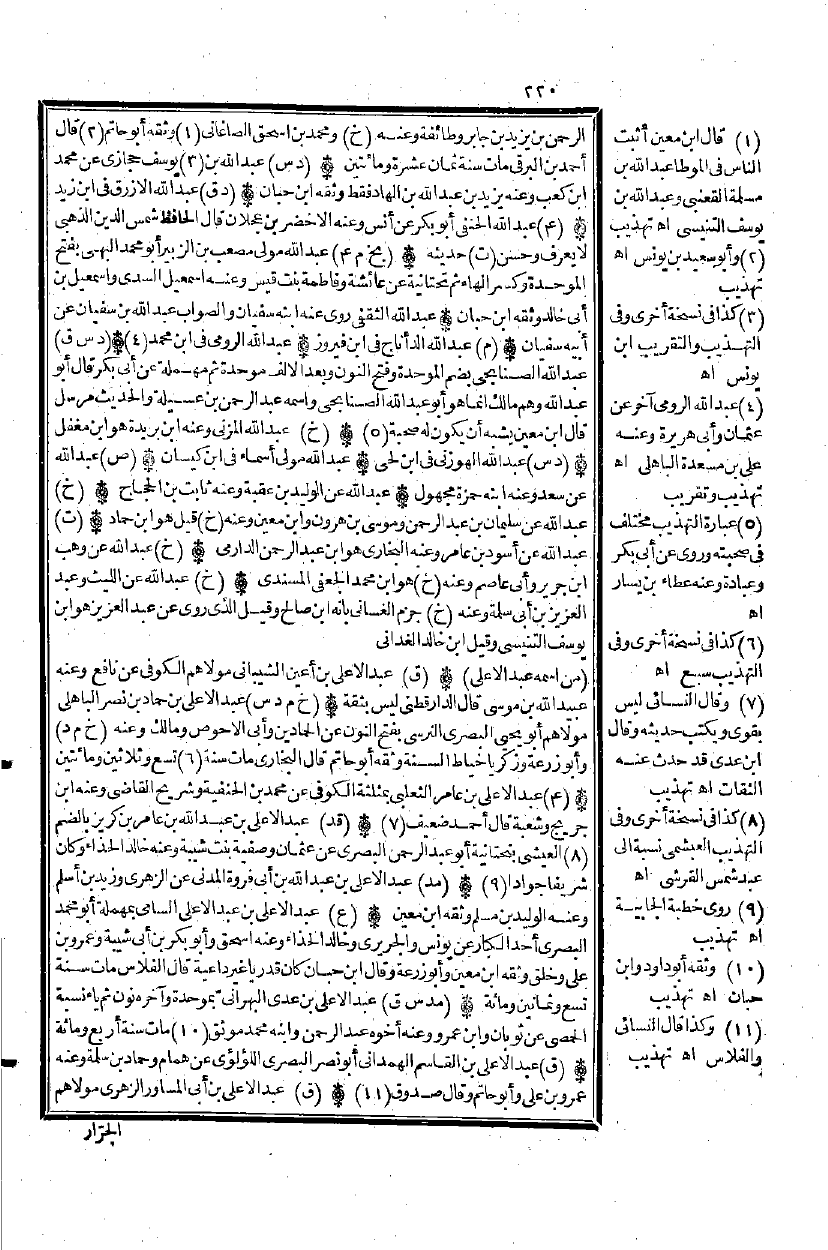 ٢٢٠
الرحمن بن يزيد بن جابر وطائفة وعنه (خ) ومحمد بن اسحق الصاغانى (١) وثقه أبو حاتم (٢) قال
أحمد بن البرقى مات سنة ثمان عشرة ومائتين (د س) عبد الله بن (٣) يوسف حجازى عن محمد
ابن كعب وعنه يزيد بن عبد الله بن الهاد فقط وثقه ابن حبان (د ق) عبد الله الازرق فى ابن زيد
(٤) عبد الله الحنفى أبو بكر عن أنس وعنه الاخضر بن عجلان قال الحافظ شمس الدين الذهبى
لا يعرف وحسن (ت) حديثه (بخ م ٤) عبد الله مولى مصعب بن الزبير أبو محمد البهى بفتح
الموحدة وكسر الهاء ثم تحتانية عن عائشة وفاطمة بنت قيس وعنه اسمعيل السدى واسمعيل بن
أبى خالد وثقه ابن حبان عبد الله الثقفى روى عنه ابنه سفيان والصواب عبد الله بن سفيان عن
أبيه سفيان (م) عبد الله الدأناج فى ابن فيروز عبد الله الرومى فى ابن محمد (٤) (د س ق)
عبد الله الصنابحى بضم الموحدة وفتح النون وبعد الالف موحدة ثم مهملة عن أبى بكر قال أبو
عبد الله وهم مالك انما هو أبو عبد الله الصنابحى واسمه عبد الرحمن بن عسيلة والحديث مرسل
قال ابن معين يشبه أن يكون له صحبة (٥) (خ) عبد الله المزنى وعنه ابن بريدة هو ابن مغفل
(د س) عبد الله الهوزنى فى ابن لحى عبد الله مولى أسماء فى ابن كيسان (ص) عبد الله
عن سعد وعنه ابنه حمزة مجهول عبد الله عن الوليد بن عقبة وعنه ثابت بن الحجاج (خ)
عبد الله عن سليمان بن عبد الرحمن وموسى بن هرون وابن معين وعنه (خ) قيل هو ابن حماد (ت)
عبد الله عن أسود بن عامر وعنه البخارى هو ابن عبد الرحمن الدارمى (خ) عبد الله عن وهب
ابن جرير وأبى عاصم وعنه (خ) هو ابن محمد الجعفى المسندى (خ) عبد الله عن الليث وعبد
العزيز بن أبى سلمة وعنه (خ) جزم الغسانى بانه ابن صالح وقيل الذى روى عن عبد العزيز هو ابن
يوسف التنيسى وقيل ابن خالد الغدانى
(من اسمه عبد الاعلى) (ق) عبد الاعلى بن أعين الشيبانى مولاهم الكوفى عن نافع وعنه
عبيد الله بن موسى قال الدارقطنى ليس بثقة (خ م د س) عبد الاعلى بن حماد بن نصر الباهلى
مولاهم أبو يحيى البصرى النرسى بفتح النون عن الحمادين وأبى الاحوص ومالك وعنه (خ م د)
وأبو زرعة وزكريا خياط السنة وثقه أبو حاتم قال البخارى مات سنة (٦) تسع وثلاثين ومائتين
(٤) عبد الاعلى بن عامر الثعلبى بمثلثة الكوفى عن محمد بن الحنفية وشريح القاضى وعنه ابن
جريج وشعبة قال أحمد ضعيف (٧) (قد) عبد الاعلى بن عبد الله بن عامر بن كريز بالضم
(٨) العيشى بتحتانية أبو عبد الرحمن البصرى عن عثمان وصفية بنت شيبة وعنه خالد الحذاء وكان
شريفا جوادا (٩) (مد) عبد الاعلى بن عبد الله بن أبى فروة المدنى عن الزهرى وزيد بن أسلم
وعنه الوليد بن مسلم وثقه ابن معين (ع) عبد الاعلى بن عبد الاعلى السامى بمهملة أبو محمد
البصرى أحد الكبار عن يونس والجريرى وخالد الحذاء وعنه اسحق وأبو بكر بن أبى شيبة وعمرو بن
على وخلق وثقه ابن معين وأبو زرعة وقال ابن حبان كان قدريا غير داعية قال الفلاس مات سنة
تسع وثمانين ومائة (مد س ق) عبد الاعلى بن عدى البهرانى بموحدة وآخره نون ثم ياء نسبة
الحمصى عن ثوبان وابن عمرو وعنه أخوه عبد الرحمن وابنه محمد موثق (١٠) مات سنة أربع ومائة
(ق) عبد الاعلى بن القاسم الهمدانى أبو نصر البصرى اللؤلؤى عن همام وحماد بن سلمة وعنه
عمرو بن على وأبو حاتم وقال صدوق (١١) (ق) عبد الاعلى بن أبى المساور الزهرى مولاهم
الجرّار
(١) قال ابن معين أثبت
الناس فى الموطا عبد الله بن
مسلمة القعنبى وعبد الله بن
يوسف التنيسى اه تهذيب
(٢) وأبو سعيد بن يونس اه
تهذيب
(٣) كذا فى نسخة أخرى وفى
التهذيب والتقريب ابن
يونس اه
(٤) عبد الله الرومى آخر عن
عثمان وأبى هريرة وعنه
على بن مسعدة الباهلى اه
تهذيب وتقريب
(٥) عبارة التهذيب مختلف
فى صحبته وروى عن أبى بكر
وعبادة وعنه عطاء بن يسار
اه
(٦) كذا فى نسخة أخرى وفى
التهذيب سبع اه
(٧) وقال النسائى ليس
بقوى ويكتب حديثه وقال
ابن عدى قد حدث عنه
الثقات اه تهذيب
(٨) كذا فى نسخة أخرى وفى
التهذيب العبشمى نسبة الى
عبد شمس القرشى اه
(٩) روى خطبة الجابية
اه تهذيب
(١٠) وثقه أبو داود وابن
حبان اه تهذيب
(١١) وكذا قال النسائى
والفلاس اه تهذيب